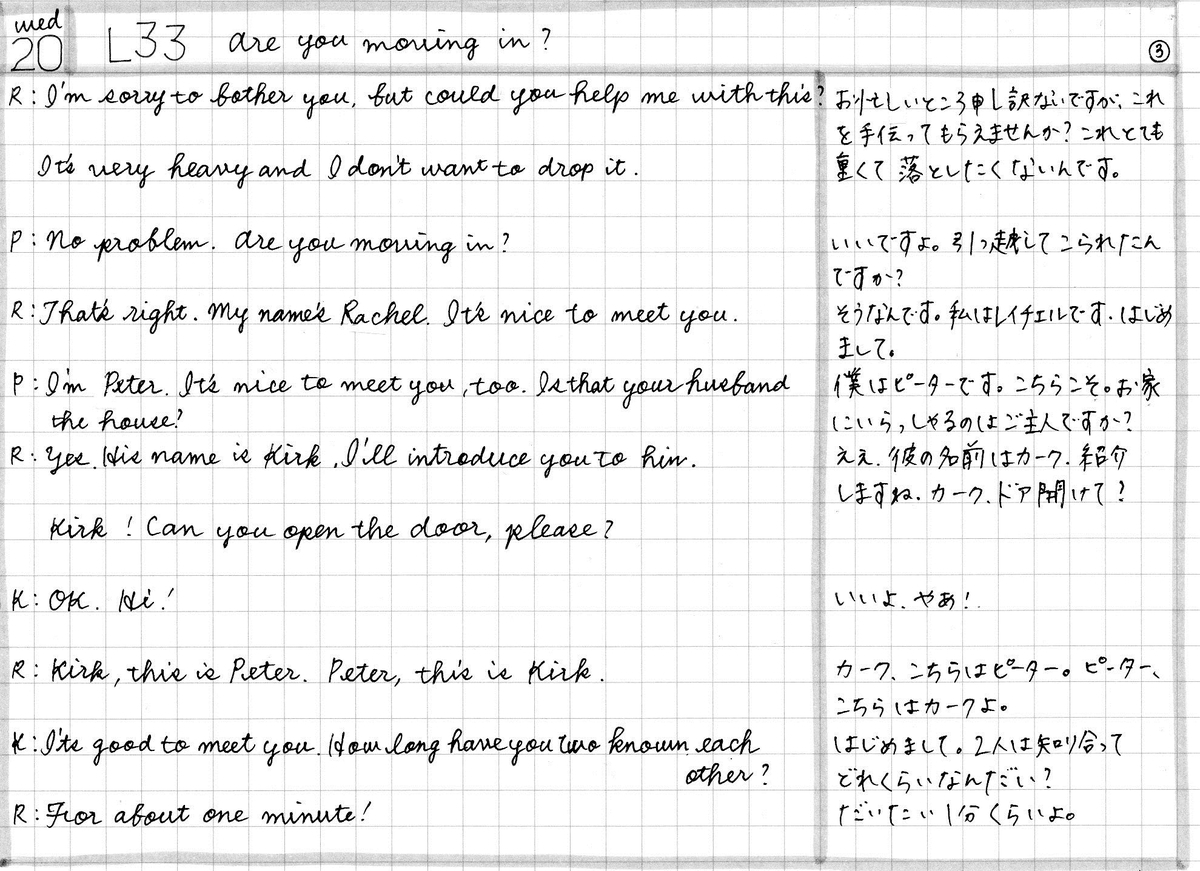 wed
20
L33 Are you moving in?
③
R: I'm sorry to bother you, but could you help me with this?
It's very heavy and I don't want to drop it.
P: No problem. Are you moving in?
R: That's right. My name's Rachel. It's nice to meet you.
P: I'm Peter. It's nice to meet you, too. Is that your husband
the house?
R: Yes. His name is Kirk. I'll introduce you to hin.
Kirk! Can you open the door, please?
K: OK. Hi!
R: Kirk, this is Peter. Peter, this is Kirk.
K: It's good to meet you. How long have you two known each
other?
R: For about one minute!
お忙しいところ申し訳ないですが、これ
を手伝ってもらえませんか?これとても
重くて落としたくないんです。
いいですよ。引っ越してこられたん
ですか?
そうなんです。私はレイチェルです。はじめ
まして。
僕はピーターです。こちらこそ。お家
にいらっしゃるのはご主人ですか?
ええ、彼の名前はカーク、紹介
しますね。カーク、ドア開けて?
いいよ、やあ!
カーク、こちらはピーター。ピーター、
こちらはカークよ。
はじめまして。2人は知り合って
どれくらいなんだい?
だいたい1分くらいよ。